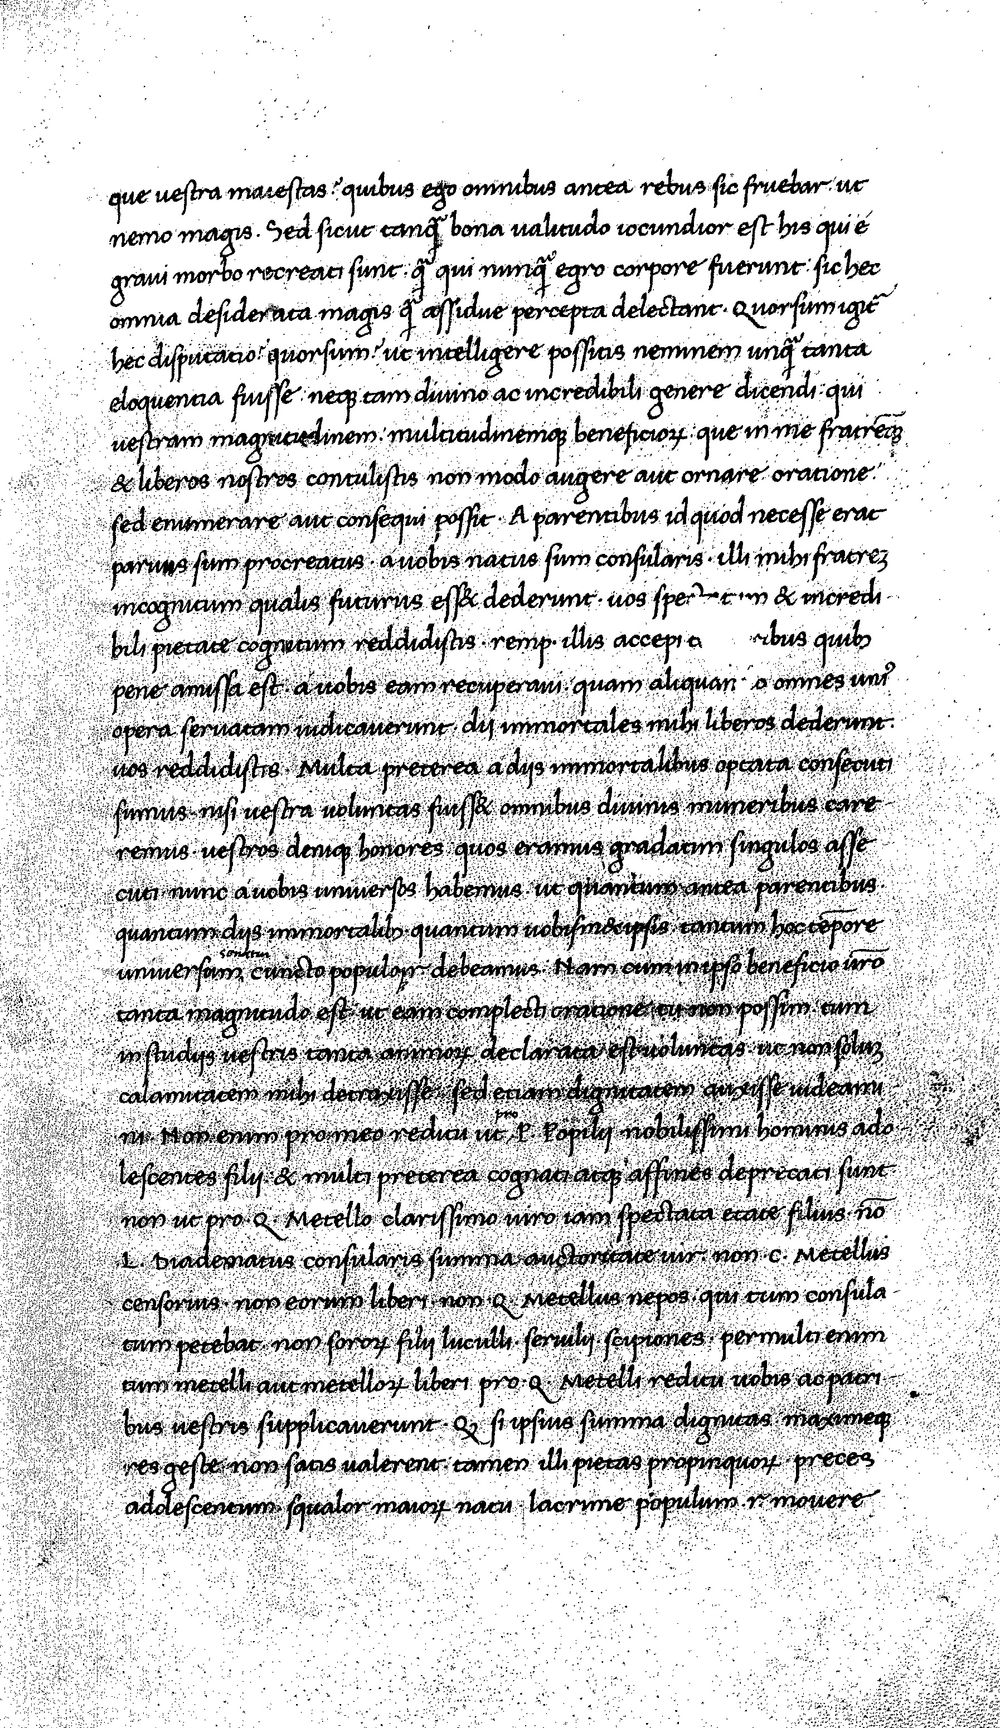 que uestra maiestas? quibus ego omnibus antea rebus sic fruebar ut
nemo magis. Sed sicut tanq̃ bona ualitudo iocundior est his qui é
graui morbo recreati sunt q̃ qui nunq̃ egro corpore fuerunt: sic hec
omnia desiderata magis q̃ assidue percepta delectant. Quorsum igit᷑
hec disputatio? quorsum? ut intelligere possitis neminem unq̃ tanta
eloquentia fuisse neq; tam diuino ac incredibili genere dicendi qui
uestram magnitudinem multitudinemq; beneficioꝝ que in me fratrēq;
& liberos nostros contulistis non modo augere aut ornare oratione
sed enumerare aut consequi possit. A parentibus id quod necesse erat
paruus sum procreatus. a uobis natus sum consularis. illi mihi fratreꝫ
incognitum qualis futurus ess& dederunt. uos & incredi
bili pietate cognitum reddidistis. remp. illis accepi quib;
pene amissa est. a uobis eam recuperaui. quam omnes uni᷒
opera seruatam iudicauerunt. dij immortales mihi liberos dederunt.
uos reddidistis. Multa preterea a dijs immortalibus optata consecuti
sumus. nisi uestra uoluntas fuiss& omnibus diuinis muneribus care
remus. uestros deniq; honores quos eramus gradatim singulos asse
cuti nunc a uobis uniuersos habemus. ut quantum antea parentibus.
quantum dijs immortalib; quantum uobism&ipsis. tantum hoc tēpore
uniuersum cuncto populo debeamus. Nam cum in ipso beneficio ur̄o
tanta magnitudo est. ut eam complecti oratione non possim. tum
in studijs uestris tanta animoꝝ declarata est uoluntas. ut non soluꝫ
calamitatem mihi detraxisse. sed etiam dignitatem auxisse uideami
ni. Non enim pro meo reditu ut pro P. Popilij nobilissimi hominis ado
lescentes filij. & multi preterea cognati atq; affines deprecati sunt
non ut pro Q. Metello clarissimo uiro iam spectata etate filius. nō
L. Diadematus consularis summa auctoritate uir. non C. Metellus
censorius. non eorum liberi. non Q. Metellus nepos. qui tum consula
tum petebat. non soroꝝ filij luculli. seruilij. scipiones. permulti enim
tum metelli aut metelloꝝ liberi pro Q. Metelli reditu uobis ac patri
bus uestris supplicauerunt. Qꝫ si ipsius summa dignitas maximeq;
res geste non satis ualerent. tamen illi pietas propinquoꝝ preces
adolescentum squalor maioꝝ natu lacrime populum mouere